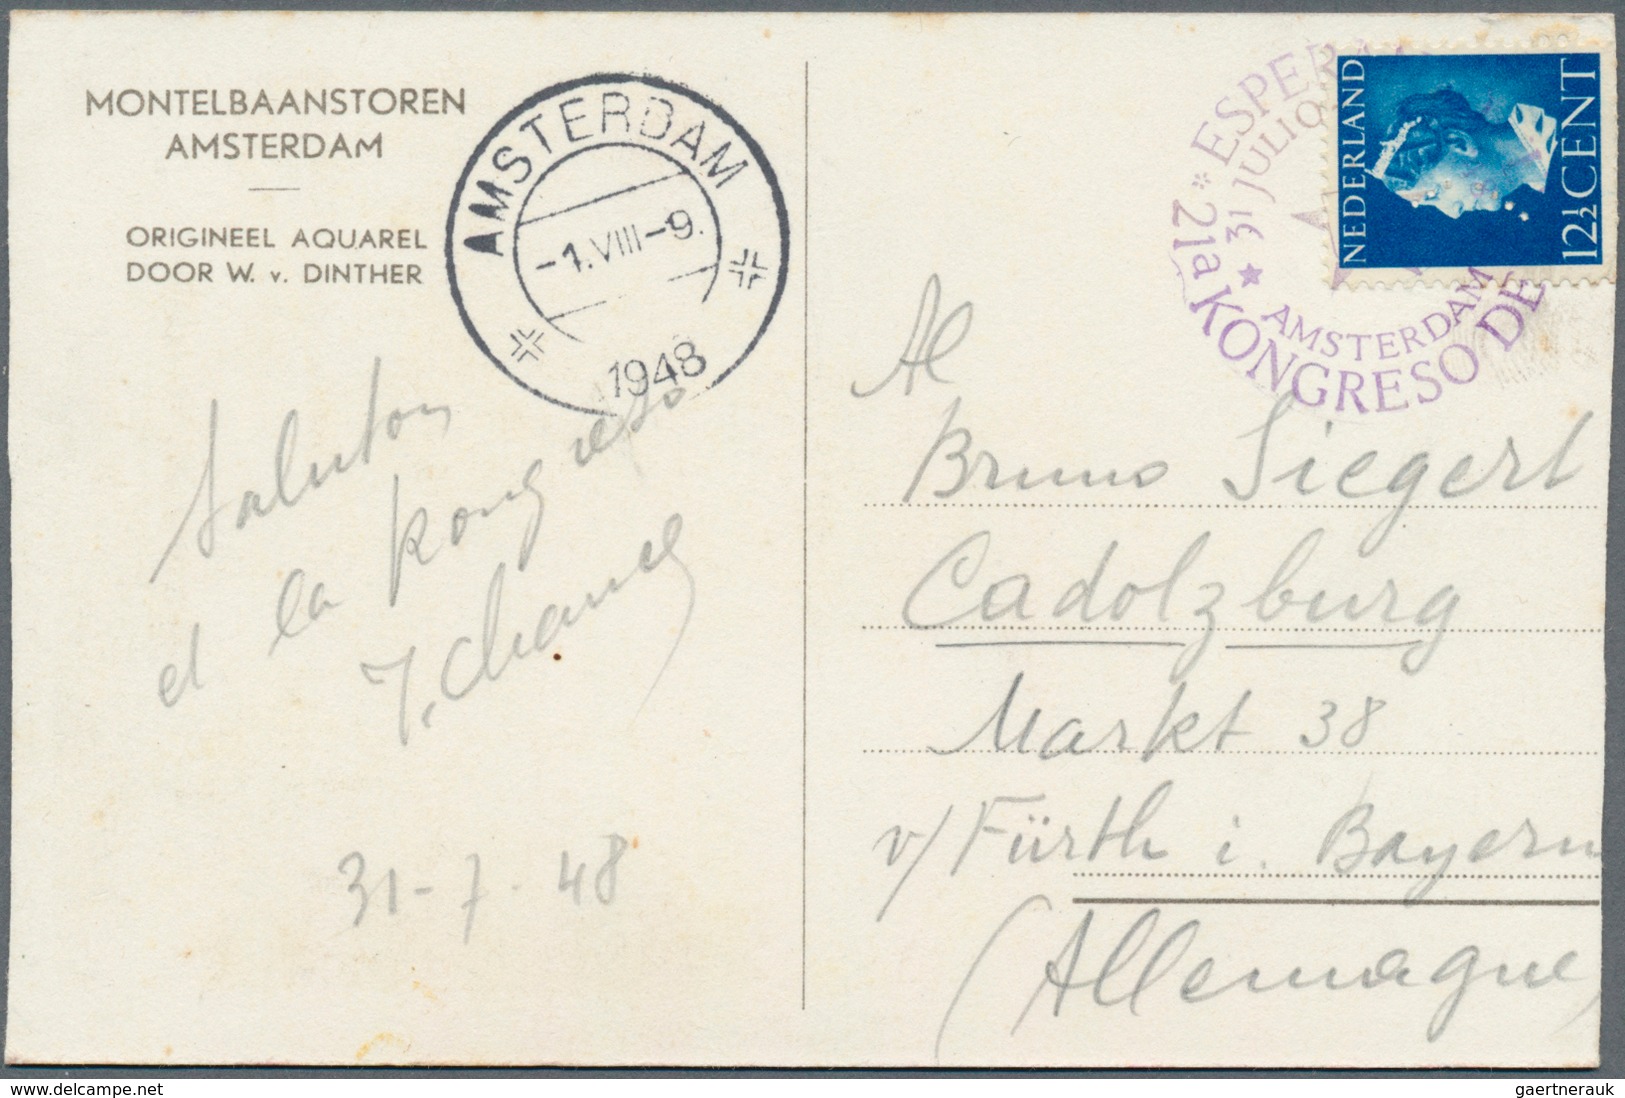 MONTELBAANSTOREN
AMSTERDAM
ORIGINEEL AQUAREL
DOOR W. v. DINTHER
AMSTERDAM
-1.VIII-9.
1948
Saluton
el la kongreso
31-7-48
* ESPERA
31 JULIO
21a KONGRESO DE
★ AMSTERDAM
NEDERLAND
12½ CENT
Al
Bruno Siegert
Cadolzburg
Markt 38
v/ Fürth i. Bayern
(Allemagne)
delcampe.net
gaertnerauk